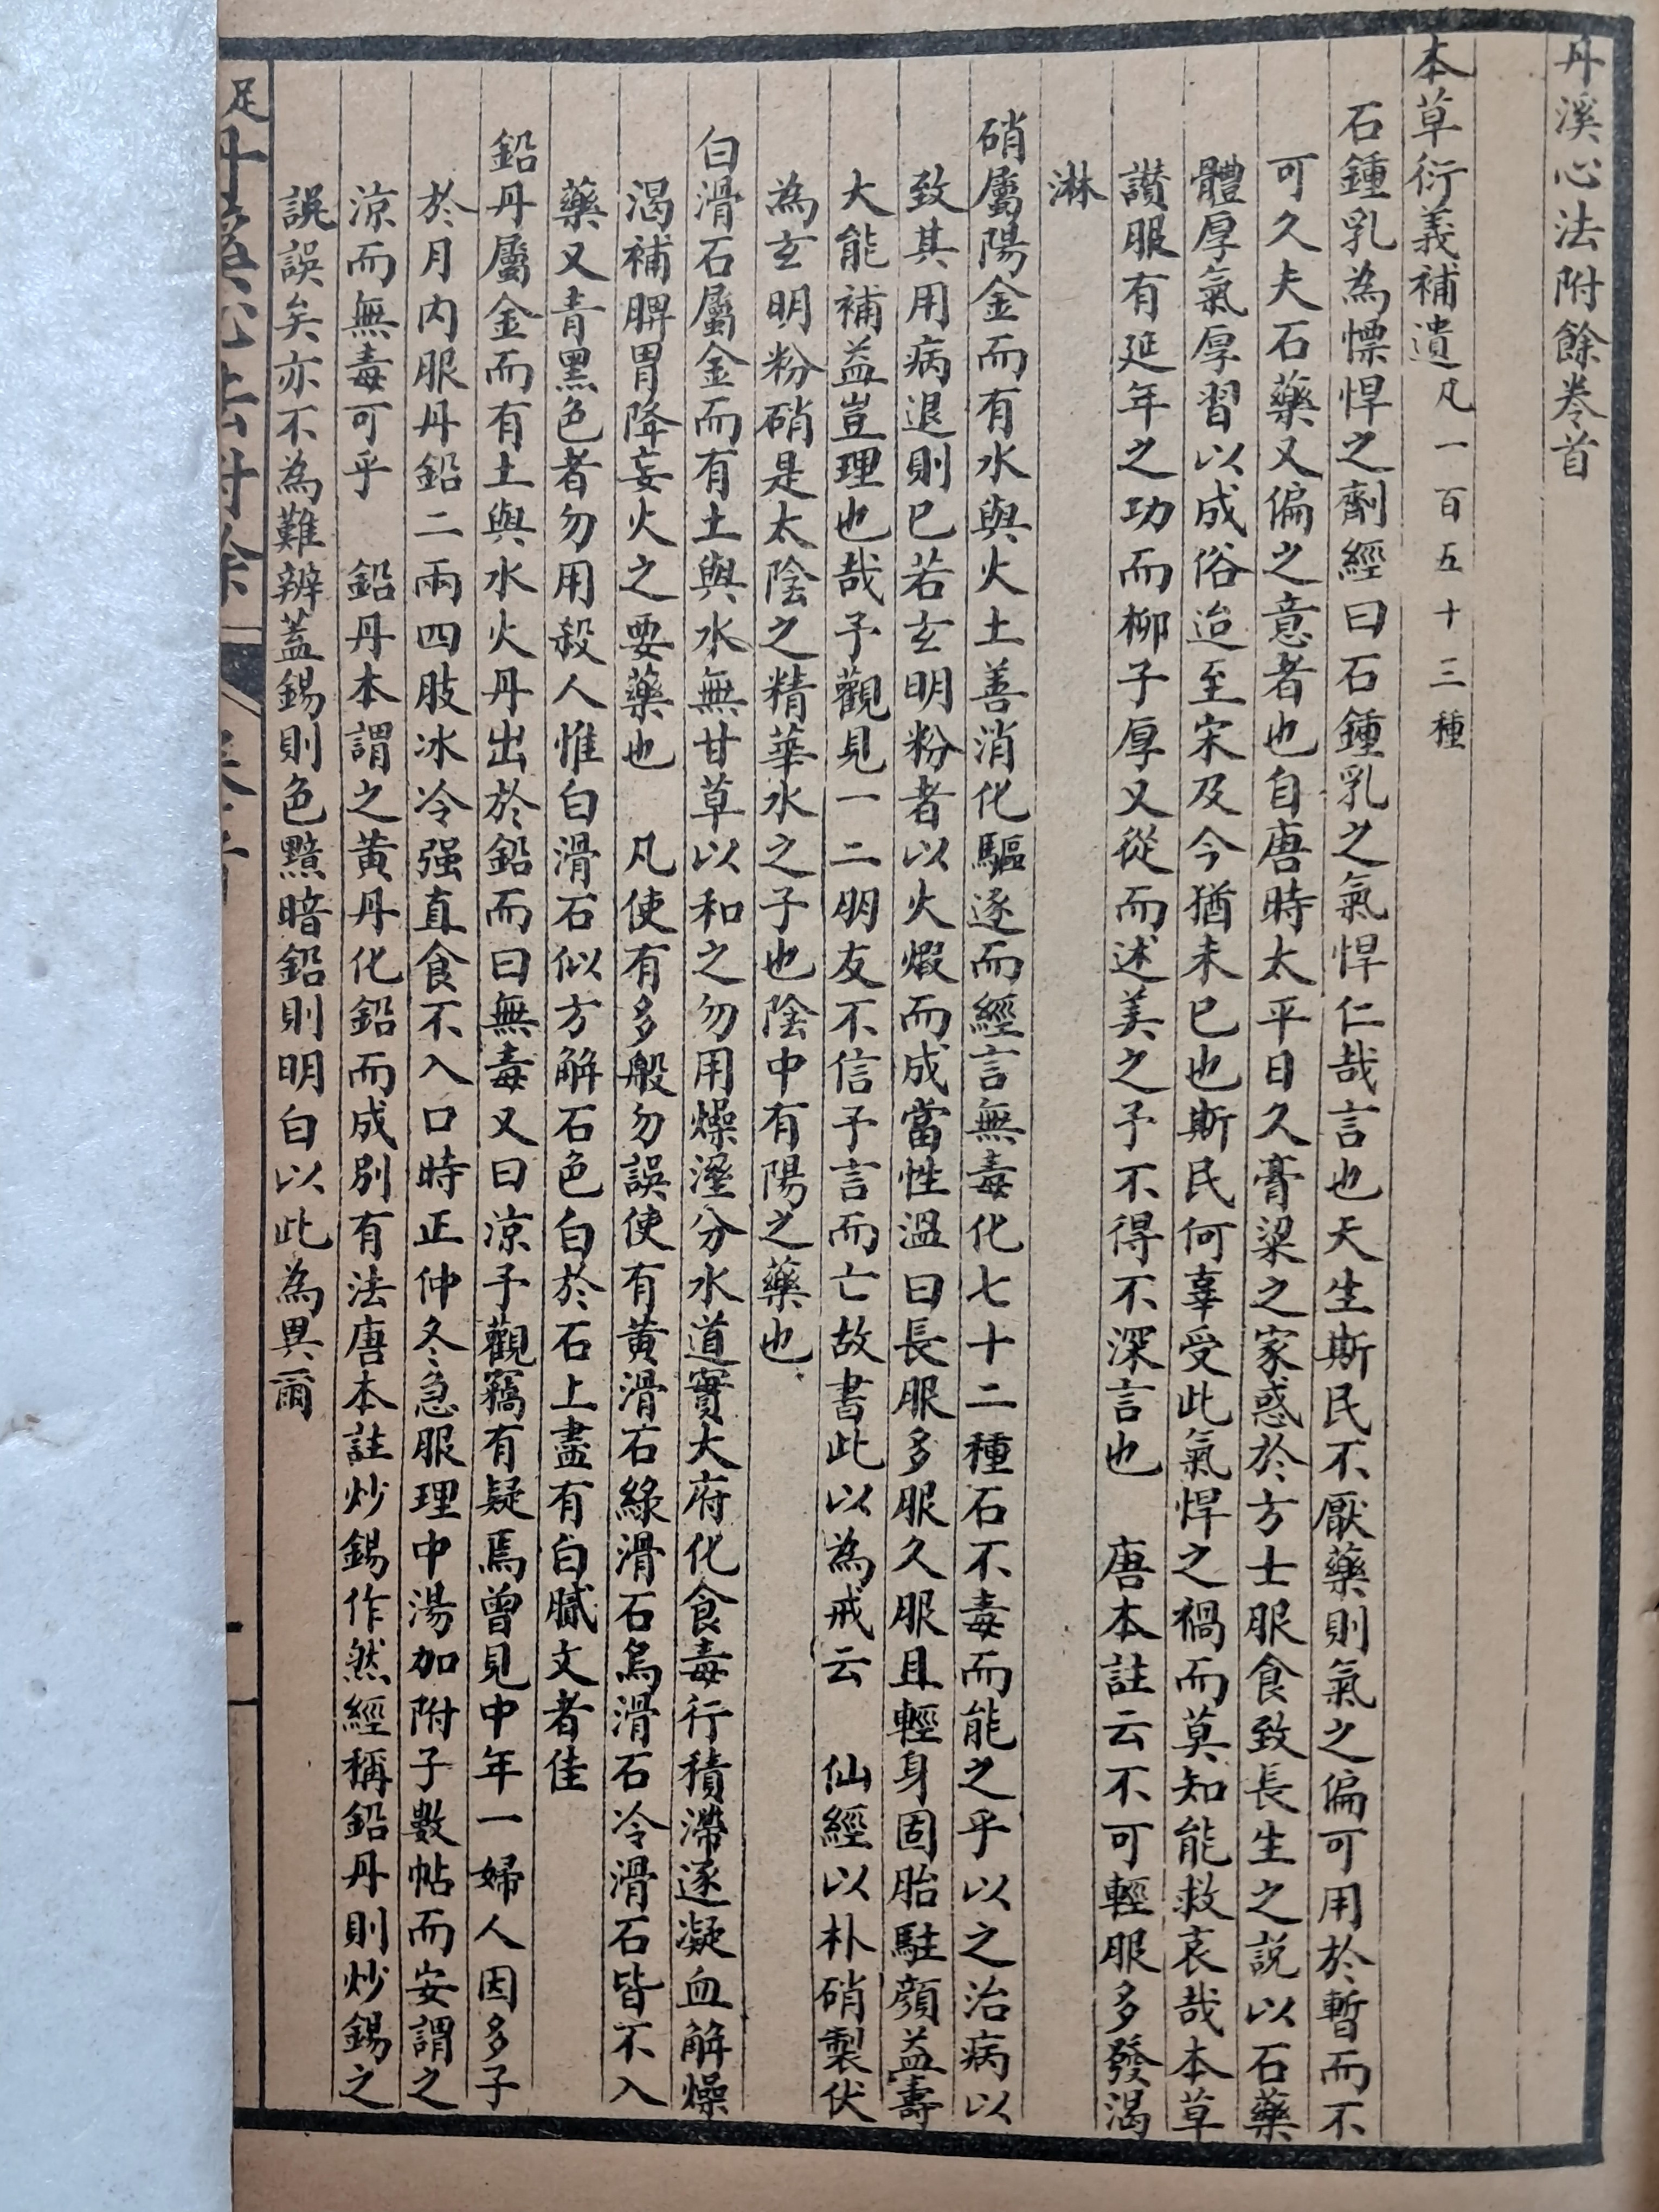 丹溪心法附餘卷首
本草衍義補遺凡一百五十三種
石鍾乳為慓悍之劑經曰石鍾乳之氣悍仁哉言也天生斯民不厭藥則氣之偏可用於暫而不
可久夫石藥又偏之意者也自唐時太平日久膏粱之家惑於方士服食致長生之説以石藥
體厚氣厚習以成俗迨至宋及今猶未已也斯民何辜受此氣悍之禍而莫知能救哀哉本草
讃服有延年之功而柳子厚又從而述美之予不得不深言也　唐本註云不可輕服多發渴
淋
硝屬陽金而有水與火土善消化驅逐而經言無毒化七十二種石不毒而能之乎以之治病以
致其用病退則已若玄明粉者以火煅而成當性溫曰長服多服久服且輕身固胎駐顔益壽
大能補益豈理也哉予觀見一二朋友不信予言而亡故書此以為戒云　仙經以朴硝製伏
為玄明粉硝是太陰之精華水之子也陰中有陽之藥也
白滑石屬金而有土與水無甘草以和之勿用燥溼分水道實大府化食毒行積滯逐凝血解燥
渴補脾胃降妄火之要藥也　凡使有多般勿誤使有黄滑石綠滑石烏滑石冷滑石皆不入
藥又青黑色者勿用殺人惟白滑石似方解石色白於石上畫有白膩文者佳
鉛丹屬金而有土與水火丹出於鉛而曰無毒又曰涼予觀竊有疑焉曾見中年一婦人因多子
於月内服丹鉛二兩四肢冰冷强直食不入口時正仲冬急服理中湯加附子數帖而安謂之
涼而無毒可乎　鉛丹本謂之黄丹化鉛而成別有法唐本註炒錫作然經稱鉛丹則炒錫之
説誤矣亦不為難辨蓋錫則色黯暗鉛則明白以此為異爾